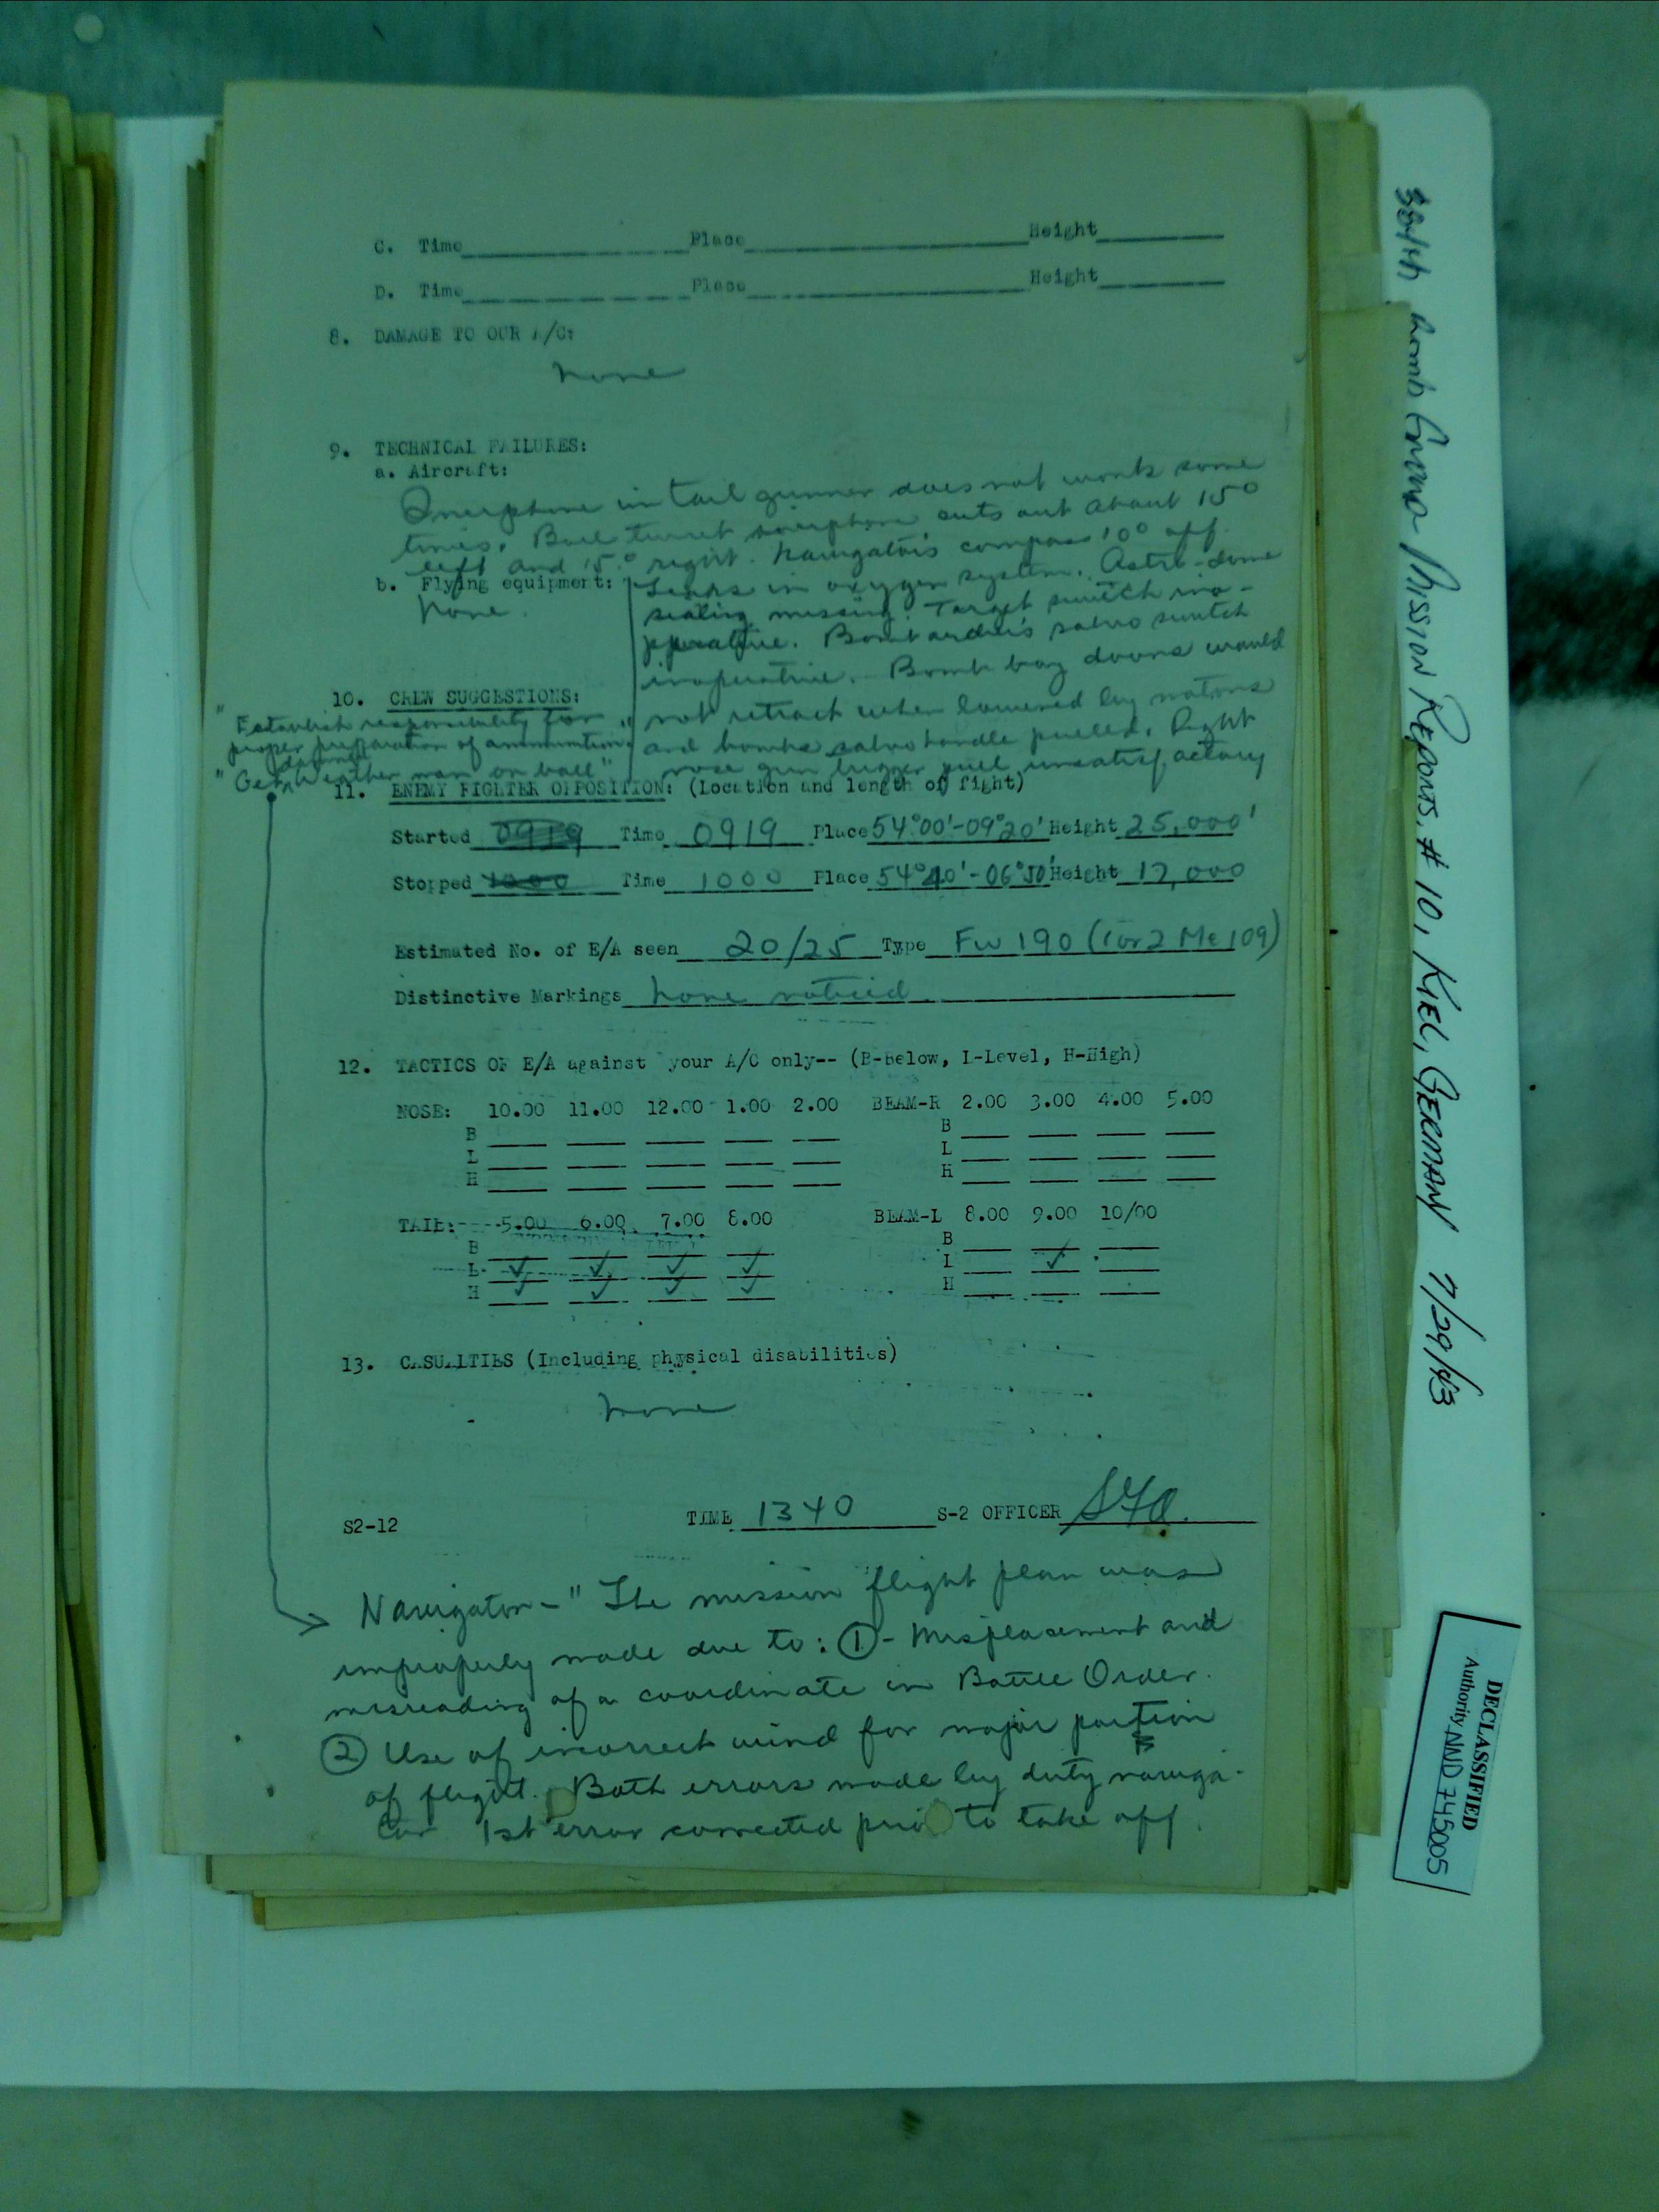 C. Time Place Height
D. Time Place Height
8. DAMAGE TO OUR A/C:
None
9. TECHNICAL FAILURES:
a. Aircraft:
in tail gunner does not work some
times. Ball turret cuts out about 150
left and 15° right. Navigator's compass 10° off.
b. Flying equipment:
None.
Leaks in oxygen system. Astro-dome
sealing missing. Target switch ino-
pperative. Bombardier's salvo switch
inoperative. Bomb bay doors would
not retract when lowered by motors
and bombs salvo handle pulled. Right
nose gun trigger pull unsatisfactory
10. CREW SUGGESTIONS:
"Establish responsibility for
proper preparation of ammunition."
"Get weather man on ball"
11. ENEMY FIGHTER OPPOSITION: (Location and length of fight)
Started 0919 Time 0919 Place 54°00'-09°20' Height 25,000'
Stopped 1000 Time 1000 Place 54°40'-06°50' Height 17,000
Estimated No. of E/A seen 20/25 Type Fw 190 (1 or 2 Me 109)
Distinctive Markings None noticed
12. TACTICS OF E/A against your A/C only-- (B-Below, L-Level, H-High)
NOSE: 10.00 11.00 12.00 1.00 2.00 BEAM-R 2.00 3.00 4.00 5.00
B B
L L
H H
TAIL: 5.00 6.00 7.00 8.00 BEAM-L 8.00 9.00 10/00
B B
L ✓ ✓ ✓ ✓ L ✓
H ✓ ✓ ✓ ✓ H
13. CASUALTIES (Including physical disabilities)
None
S2-12 TIME 1340 S-2 OFFICER
Navigator - "The mission flight plan was
improperly made due to: ① - Misplacement and
misreading of a coordinate in Battle Order.
② Use of incorrect wind for major portion
of flight. Both errors made by duty naviga-
tor 1st error corrected prior to take off.
384th Bomb Group Mission Reports, # 10, KIEL, GERMAN 7/29/43
DECLASSIFIED
Authority NND 745005